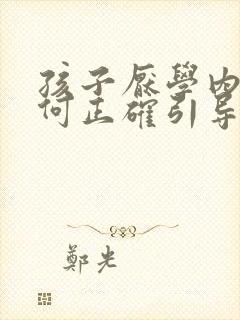 孩子厭學內
何正確引导
鄭光